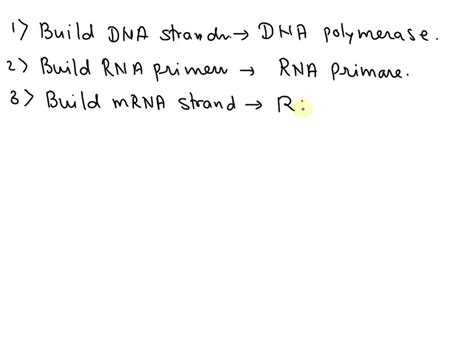 1) Build DNA strands → DNA polymerase.
2) Build RNA primers → RNA Primase.
3) Build mRNA strand → R